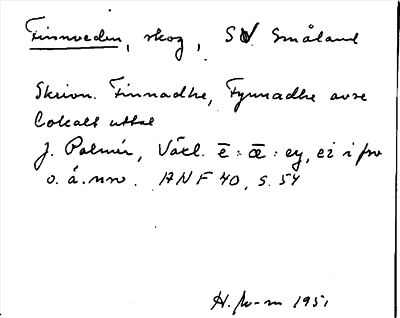 Finnveden, skog, SV. Småland
Skrivn. Finnadhe, Fynnadhe avse
lokalt uttal
J. Palmér, Växl. ē : œ̄ : ey, ei i fno
o. ä. nno. ANF 40, s. 54
1951